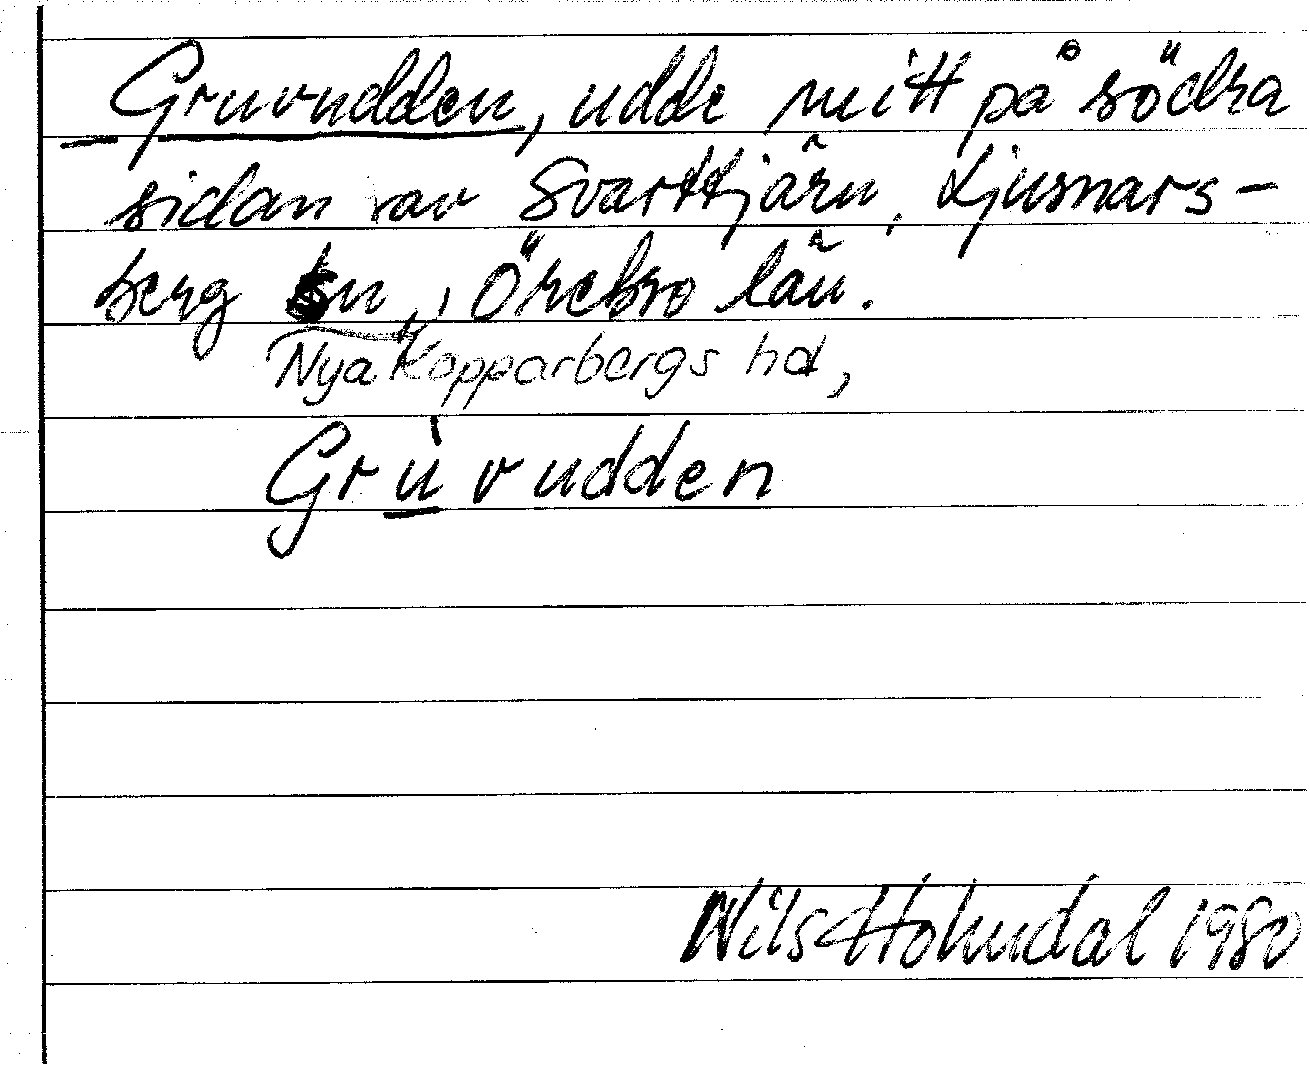 Gruvudden, udde mitt på södra
sidan av Svarttjärn, Ljusnars-
berg sn, Örebro län.
Nya Kopparbergs hd,
Grùvudden
Nils Holmdal 1980